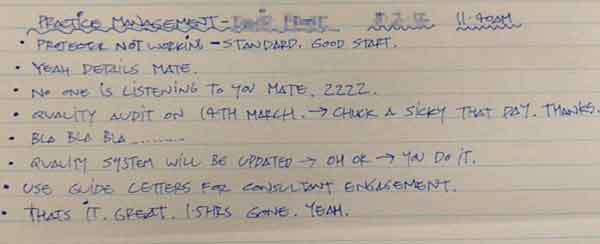 PRACTICE MANAGEMENT -
• PROTECTER NOT WORKING - STANDARD. GOOD START.
• YEAH DETAILS MATE.
• NO ONE IS LISTENING TO YOU MATE. ZZZZ.
• QUALITY AUDIT ON 19TH MARCH. → CHUCK A SICKY THAT DAY. THANKS.
• BLA BLA BLA ..........
• QUALITY SYSTEM WILL BE UPDATED → OH OK → YOU DO IT.
• USE GUIDE LETTERS FOR CONSULTANT ENGAGEMENT.
• THATS IT. GREAT. 1.5HRS GONE. YEAH.